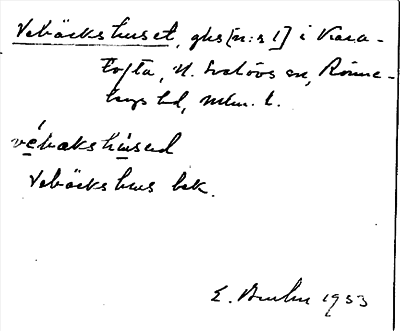 Vebäckshuset, ghs [n:s 1] i Kara-
tofta, N. Svalövs sn, Rönne-
bgs hd, Mlm. l.
vébakshúsed
Vebäckshus bek.
E. Bruhn 1953